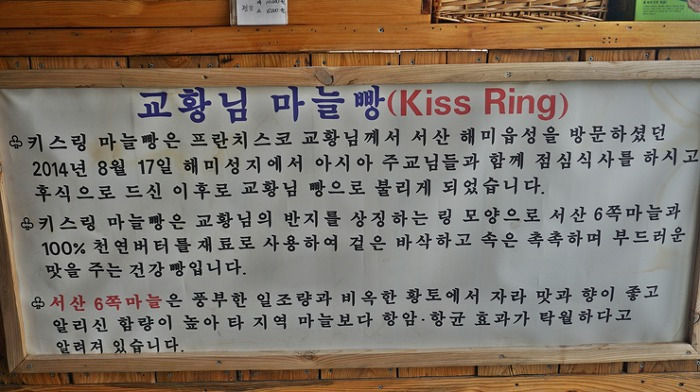 교황님 마늘빵(Kiss Ring)
♧키스링 마늘빵은 프란치스코 교황님께서 서산 해미읍성을 방문하셨던
2014년 8월 17일 해미성지에서 아시아 주교님들과 함께 점심식사를 하시고
후식으로 드신 이후로 교황님 빵으로 불리게 되었습니다.
♧키스링 마늘빵은 교황님의 반지를 상징하는 링 모양으로 서산 6쪽마늘과
100% 천연버터를 재료로 사용하여 겉은 바삭하고 속은 촉촉하며 부드러운
맛을 주는 건강빵입니다.
♧서산 6쪽마늘은 풍부한 일조량과 비옥한 황토에서 자라 맛과 향이 좋고
알리신 함량이 높아 타 지역 마늘보다 항암·항균 효과가 탁월하다고
알려져 있습니다.